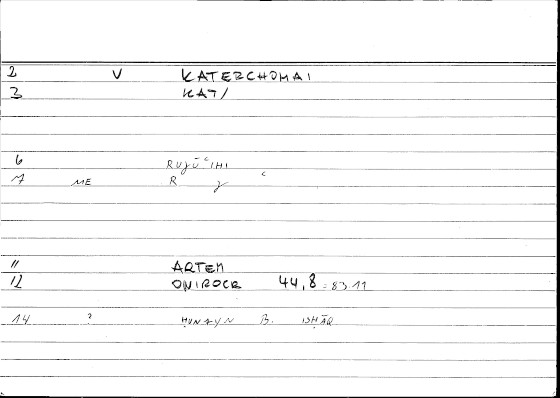 2 V KATERCHOMAI
3 KAT/
6 RUǦŪʿIHI
7 ME R ǧ ʿ
11 ARTEM
12 ONIROCR 44,8 = 83.11
14 ? ḤUNAYN B. ISḤĀQ